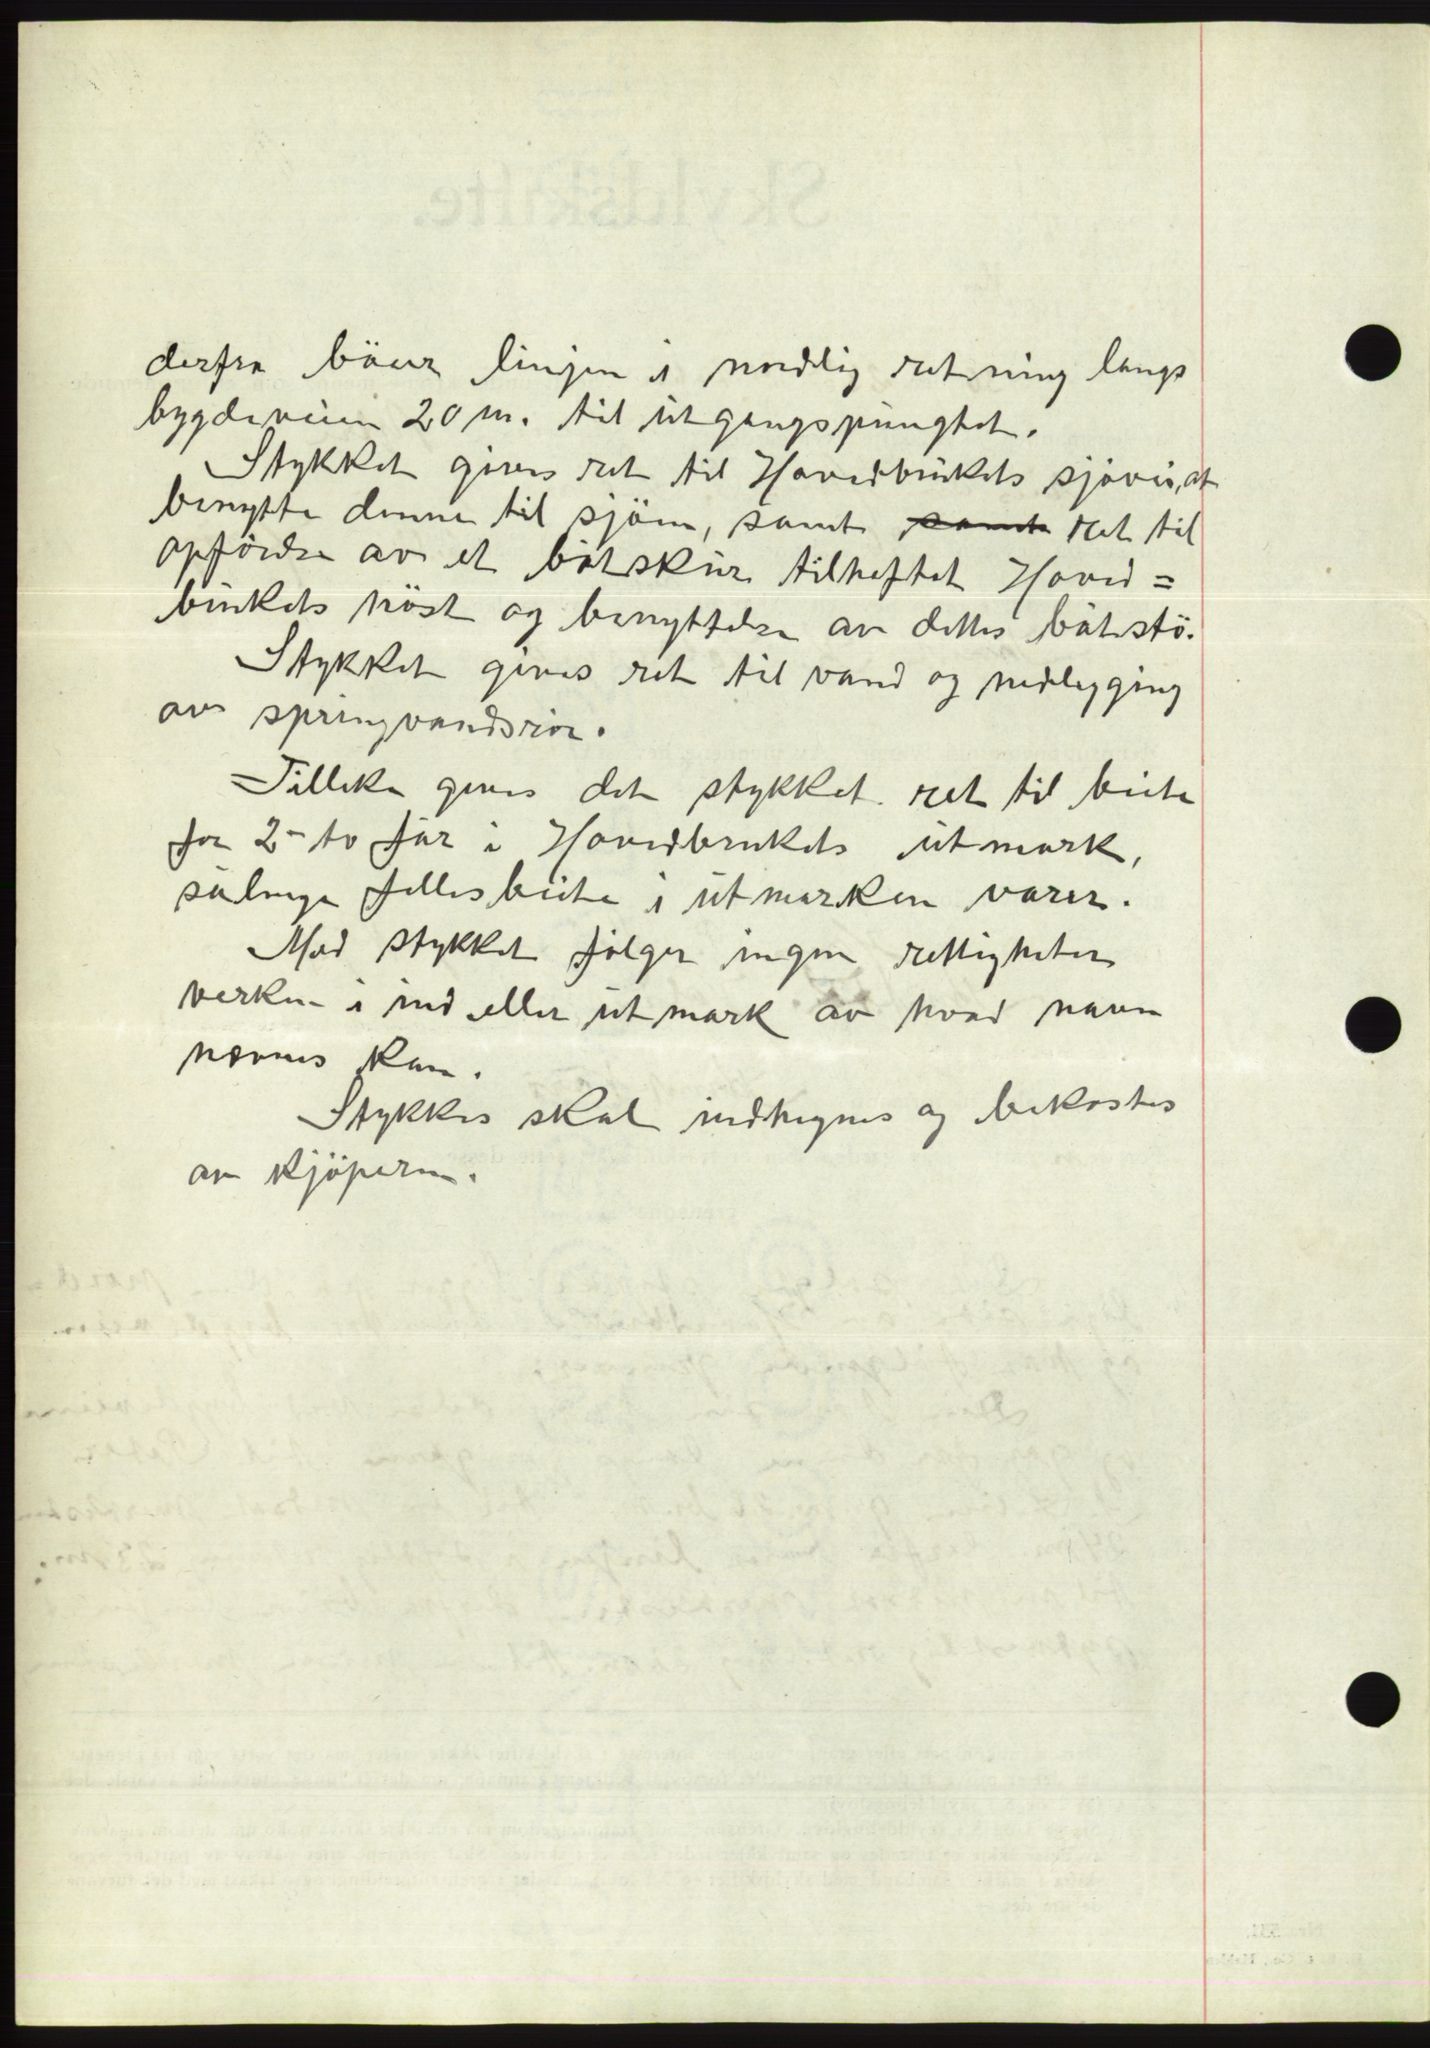 derfra böier linjen i nordlig retning langs
bygdeveien 20 m. til utgangspungtet.
Stykket gives ret til Hovedbrukets sjøvei, at
benytte denne til sjøen, samt samt ret til
opførelse av et båtskur tilheftet Hoved=
brukets nöst og benyttelse av dettes båtstö.
Stykket gives ret til vand og nedlegging
av springvandsrør.
Tillike gives det stykket ret til beite
for 2- to får i Hovedbrukets utmark,
sålenge fellesbeite i utmarken varer.
Med stykket følger ingen rettigheter
verken i ind eller utmark av hvad navn
nevnes kan.
Stykkes skal indhegnes og bekostes
av kjöperen.